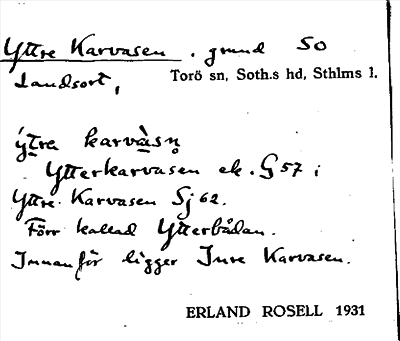 Yttre Karvasen. grund SO
Landsort,
Torö sn, Soth.s hd, Sthlms l.
ýtra karvàsn̥
Ytterkarvasen ek. G 57 i
Yttre Karvasen Sj 62.
Förr kallad Ytterbådan.
Innanför ligger Inre Karvasen.
ERLAND ROSELL 1931